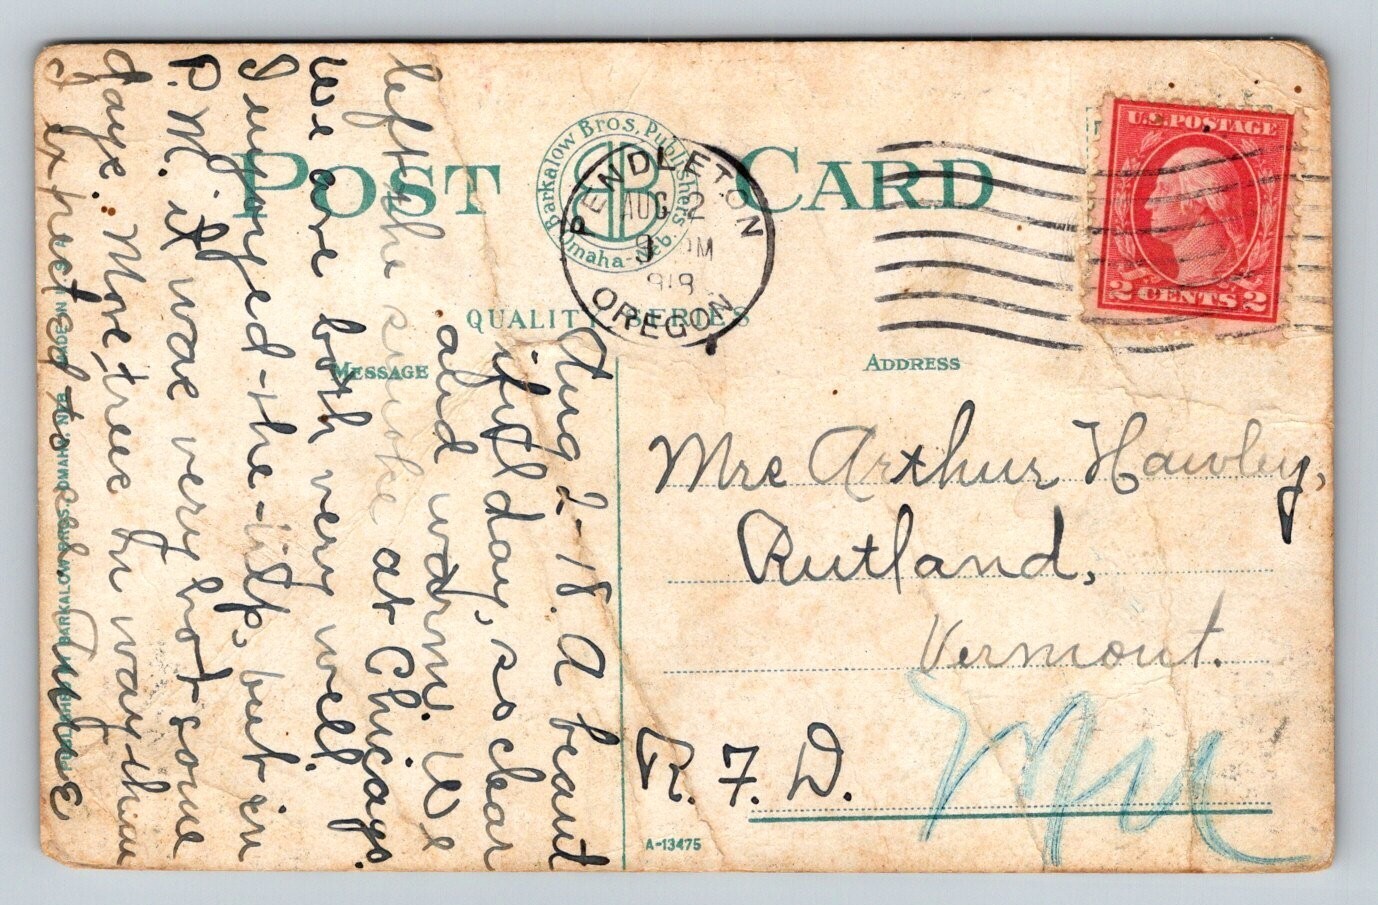 POST CARD
Barkalow Bros. Publishers
Omaha-Neb.
PENDLETON
AUG 2
9 M
918
OREGON
U.S.POSTAGE
2 CENTS 2
QUALITY SERIES
MESSAGE
ADDRESS
Aug 2-18. A beaut
iful day, so clear
and warm. We
left the smoke at Chicago.
We are both very well.
I enjoyed the trip, but in
P.M. it was very hot some
days. More trees by way than
I expected to see.
Mrs Arthur Hawley,
Rutland,
Vermont.
R. F. D.
A-13475
BARKALOW BROS., OMAHA, NEB. MADE IN